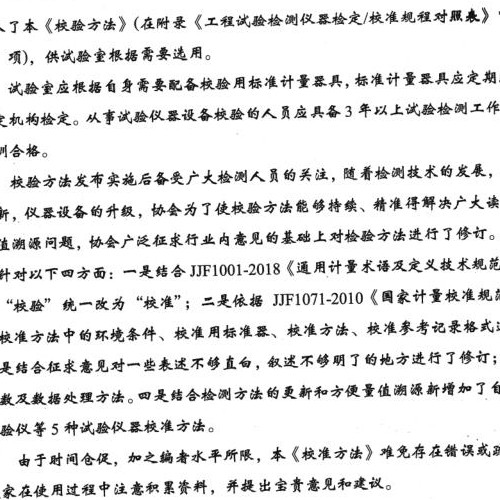 了本《校验方法》(在附录《工程试验检测仪器检定/校准规程对照表》
项)，供试验室根据需要选用。
试验室应根据自身需要配备校验用标准计量器具，标准计量器具应定期
定机构检定。从事试验仪器设备校验的人员应具备3年以上试验检测工作
训合格。
校验方法发布实施后备受广大检测人员的关注，随着检测技术的发展，
新，仪器设备的升级，协会为了使校验方法能够持续、精准得解决广大读
值溯源问题，协会广泛征求行业内意见的基础上对检验方法进行了修订。
针对以下四方面：一是结合 JJF1001-2018《通用计量术语及定义技术规范
“校验”统一改为“校准”；二是依据 JJF1071-2010《国家计量校准规范
校准方法中的环境条件、校准用标准器、校准方法、校准参考记录格式
是结合征求意见对一些表述不够直白，叙述不够明了的地方进行了修订；
数及数据处理方法。四是结合检测方法的更新和方便量值溯源新增加了自
验仪等5种试验仪器校准方法。
由于时间仓促，加之编者水平所限，本《校准方法》难免存在错误或疏
家在使用过程中注意积累资料，并提出宝贵意见和建议。